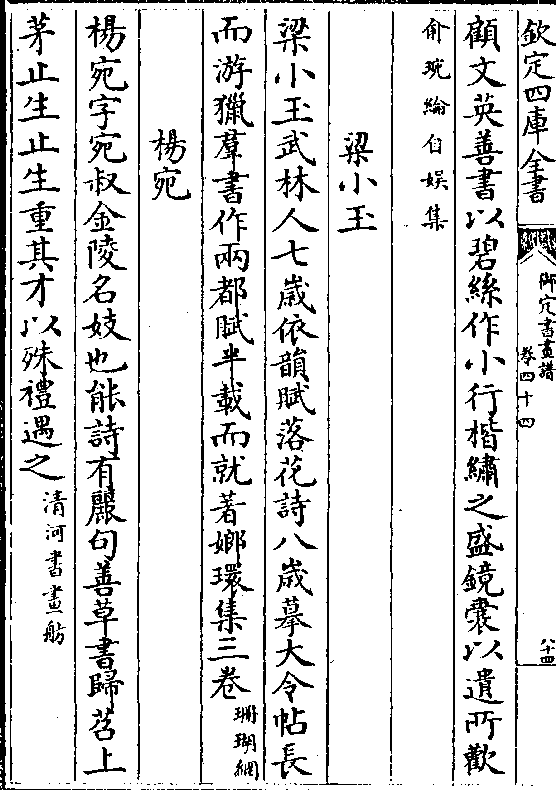 欽定四庫全書
御定書畫譜
卷四十四
八十四
顧文英善書以碧絲作小行楷繡之盛鏡囊以遺所歡
俞琬綸自娱集
梁小玉
梁小玉武林人七歲依韻賦落花詩八歲摹大令帖長
而游獵羣書作兩都賦半載而就著嫏環集三卷
珊瑚網
楊宛
楊宛字宛叔金陵名妓也能詩有麗句善草書歸苕上
茅止生止生重其才以殊禮遇之
清河書畫舫